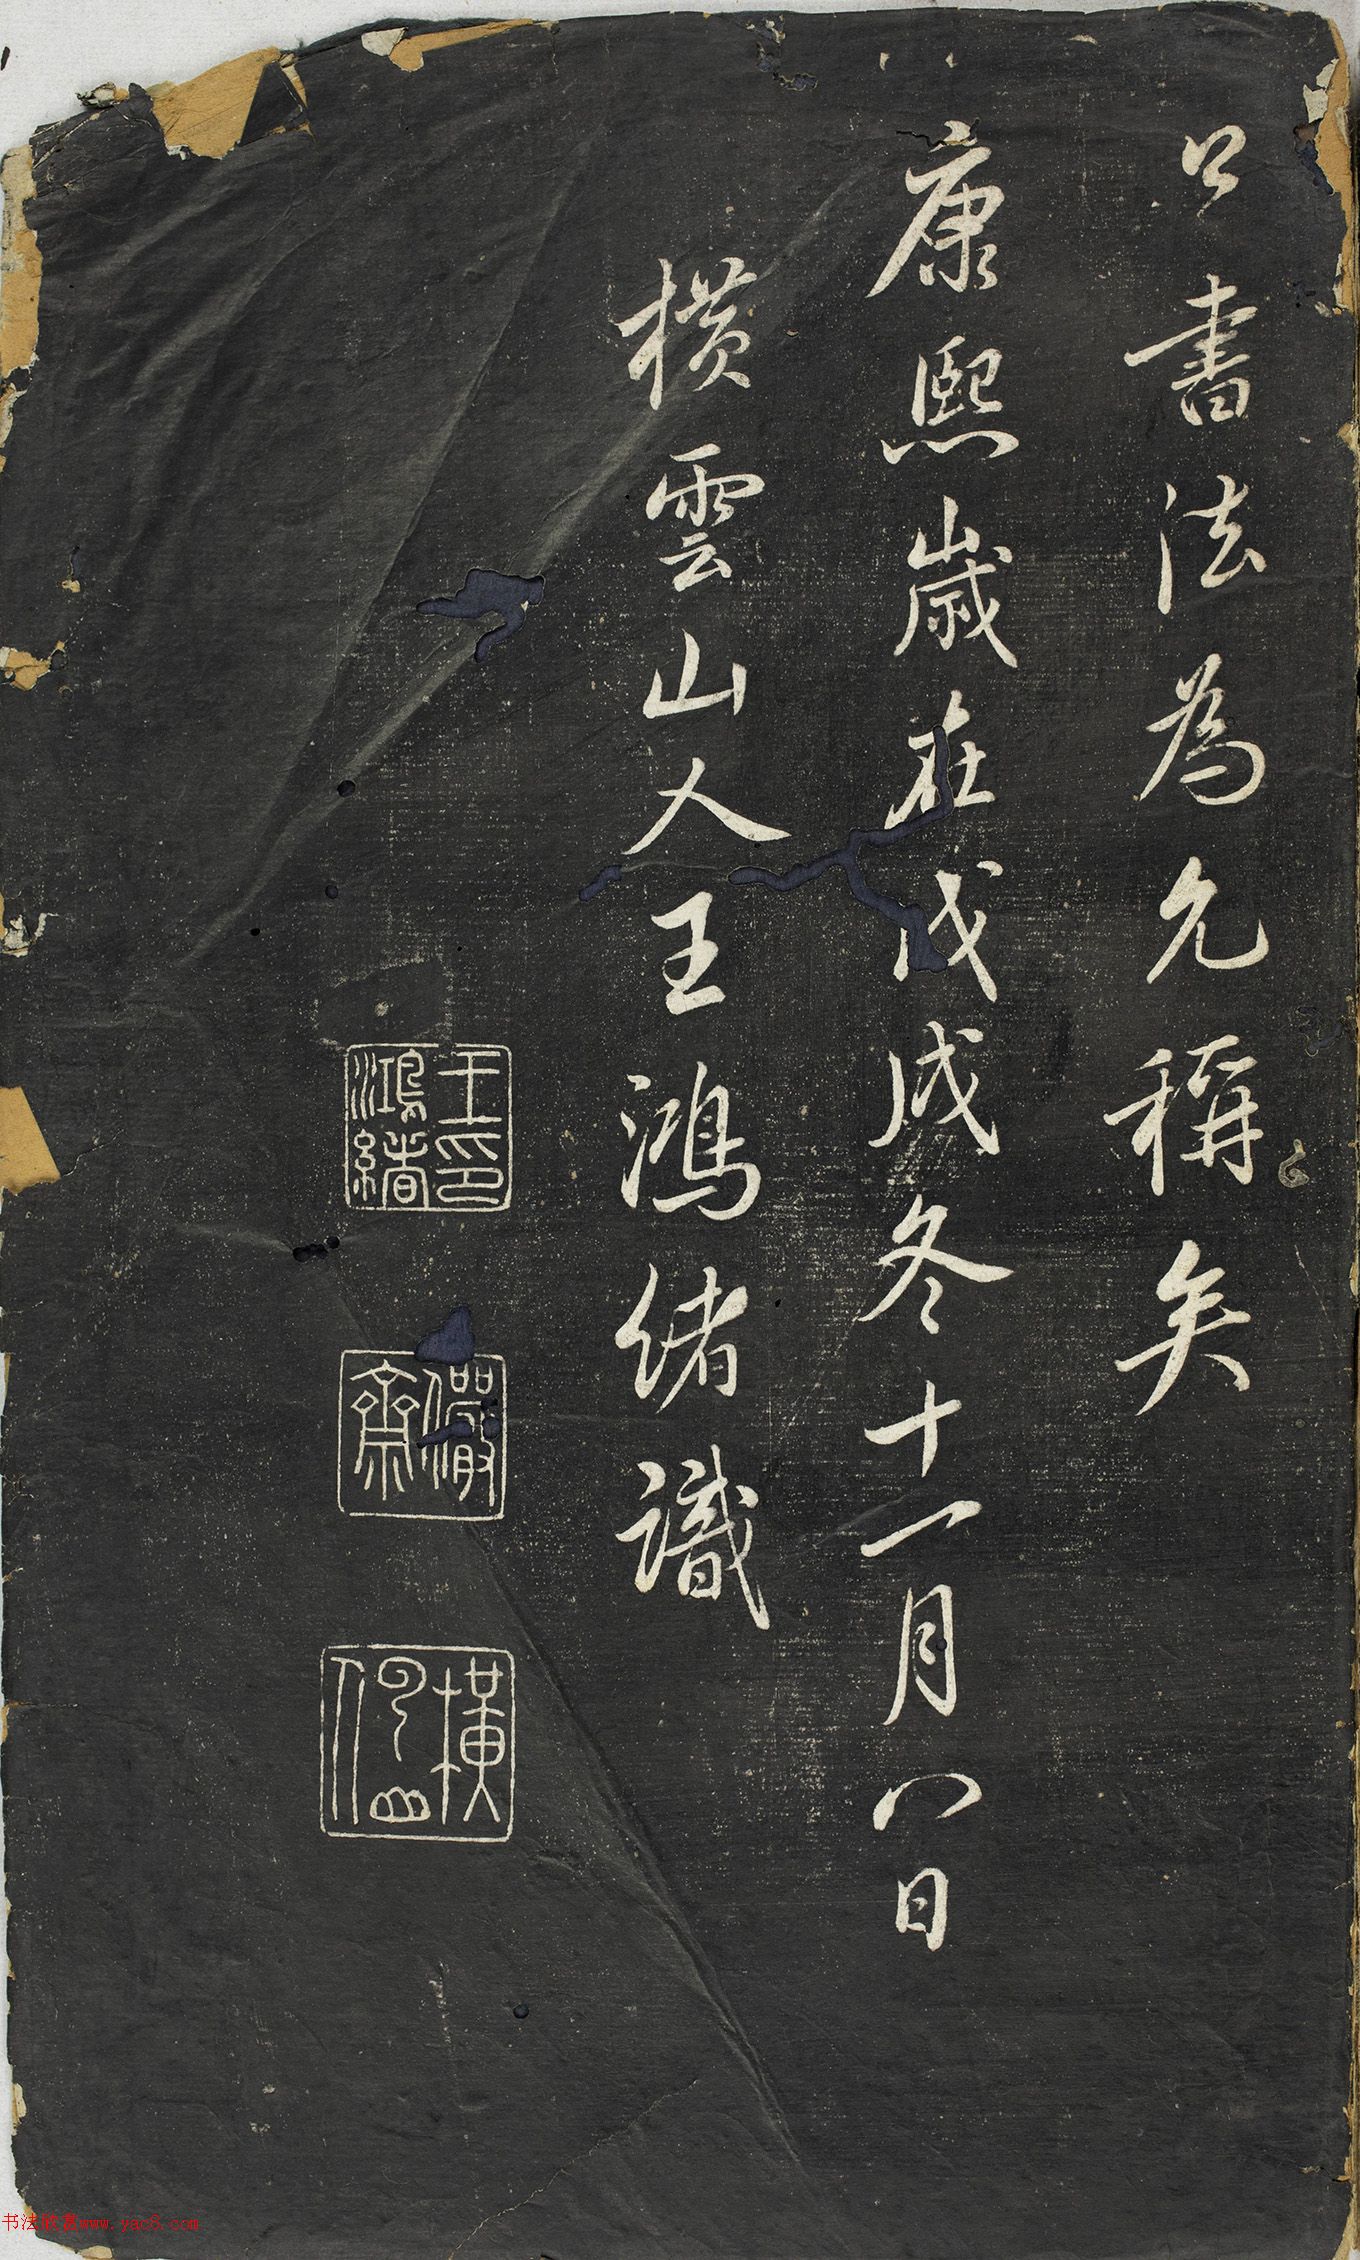 公書法為允稱矣
康熙歲在戊戌冬十一月八日
橫雲山人王鴻緒識
王印鴻緒
儼齋
橫雲山人
书法欣赏www.yac8.com